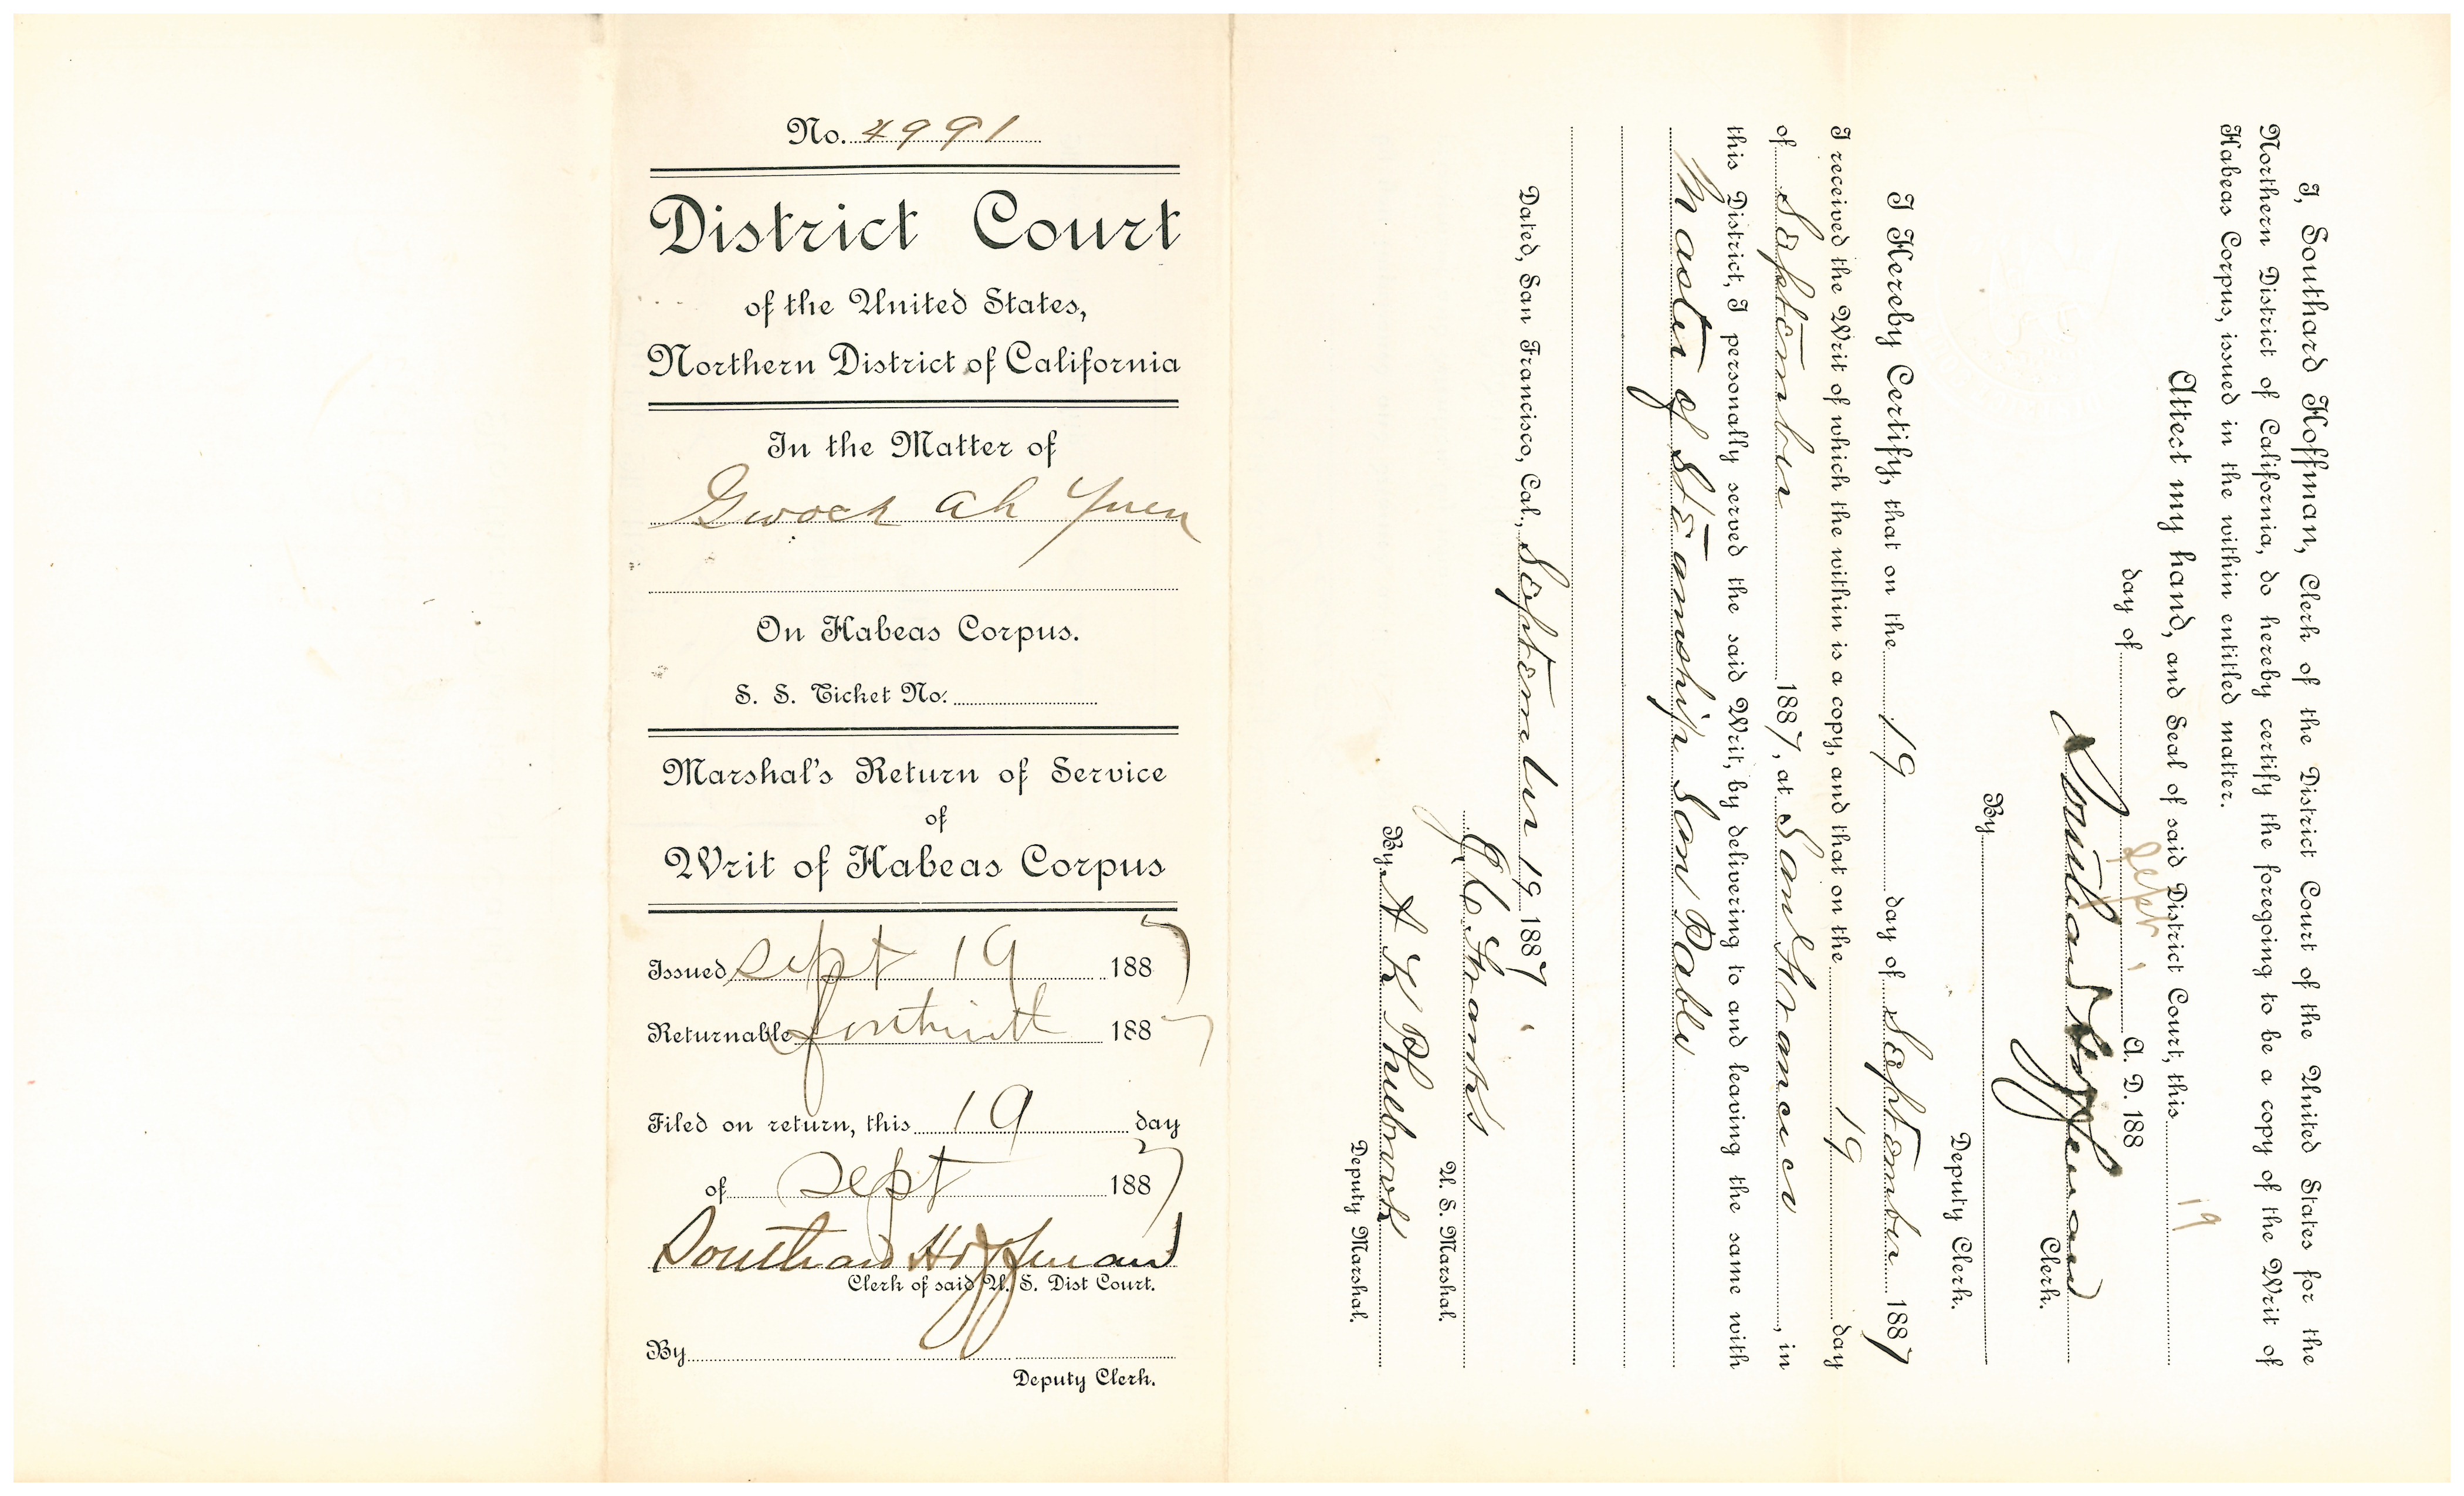 No. 4991
District Court
of the United States,
Northern District of California
In the Matter of
Gwock Ah Yuen
On Habeas Corpus.
S. S. Ticket No.
Marshal's Return of Service
of
Writ of Habeas Corpus
Issued Sept 19 1887
Returnable forthwith 1887
Filed on return, this 19 day
of Sept 1887
Southard Hoffman
Clerk of said U. S. Dist Court.
By
Deputy Clerk.
I, Southard Hoffman, Clerk of the District Court of the United States for the
Northern District of California, do hereby certify the foregoing to be a copy of the Writ of
Habeas Corpus, issued in the within entitled matter.
Attest my hand, and Seal of said District Court, this 19
day of Sept A. D. 188
Southard Hoffman
Clerk.
By
Deputy Clerk.
I Hereby Certify, that on the 19 day of September 1887
I received the Writ of which the within is a copy, and that on the 19 day
of September 1887, at San Francisco, in
this District, I personally served the said Writ, by delivering to and leaving the same with
Master of Steamship San Pablo
Dated, San Francisco, Cal., September 19 1887
J. C. Franks
U. S. Marshal.
By
Deputy Marshal.